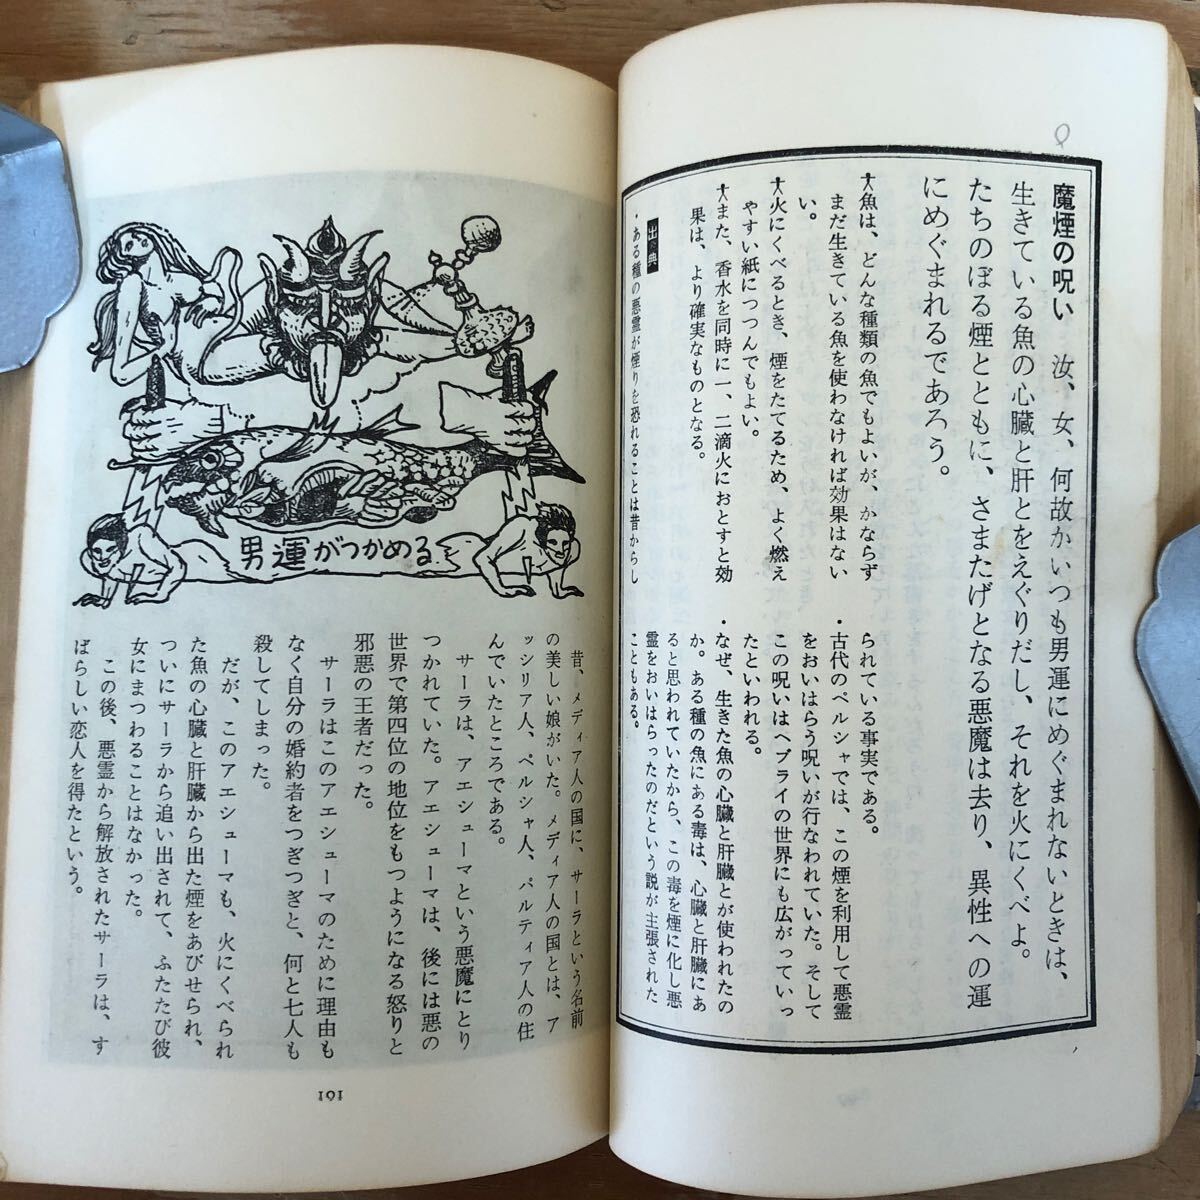 魔煙の呪い 汝、女、何故かいつも男運にめぐまれないときは、
生きている魚の心臓と肝とをえぐりだし、それを火にくべよ。
たちのぼる煙とともに、さまたげとなる悪魔は去り、異性への運
にめぐまれるであろう。
魚は、どんな種類の魚でもよいが、かならず
まだ生きている魚を使わなければ効果はない
い。
火にくべるとき、煙をたてるため、よく燃え
やすい紙につつんでもよい。
また、香水を同時に一、二滴火におとすと効
果は、より確実なものとなる。
出典
・ある種の悪霊が煙りを恐れることは昔からし
られている事実である。
・古代のペルシャでは、この煙を利用して悪霊
をおいはらう呪いが行なわれていた。そして
この呪いはヘブライの世界にも広がっていっ
たといわれる。
・なぜ、生きた魚の心臓と肝臓とが使われたの
か。ある種の魚にある毒は、心臓と肝臓にあ
ると思われていたから、この毒を煙に化し悪
霊をおいはらったのだという説が主張された
こともある。
男運がつかめる
昔、メディア人の国に、サーラという名前
の美しい娘がいた。メディア人の国とは、ア
ッシリア人、ペルシャ人、パルティア人の住
んでいたところである。
サーラは、アエシューマという悪魔にとり
つかれていた。アエシューマは、後には悪の
世界で第四位の地位をもつようになる怒りと
邪悪の王者だった。
サーラはこのアエシューマのために理由も
なく自分の婚約者をつぎつぎと、何と七人も
殺してしまった。
だが、このアエシューマも、火にくべられ
た魚の心臓と肝臓から出た煙をあびせられ、
ついにサーラから追い出されて、ふたたび彼
女にまつわることはなかった。
この後、悪霊から解放されたサーラは、す
ばらしい恋人を得たという。
161